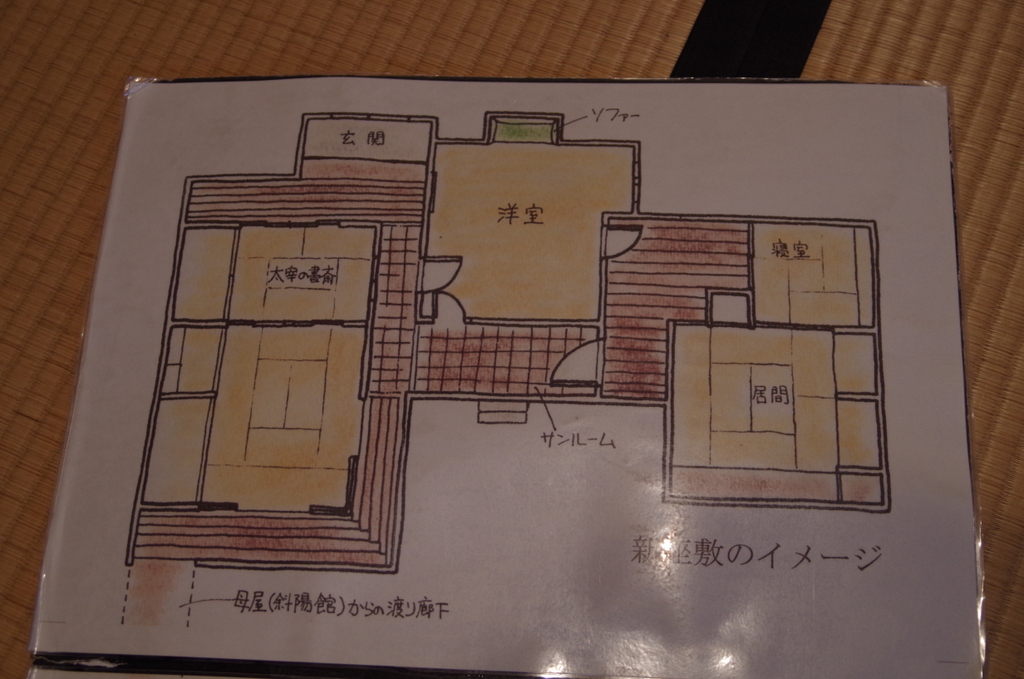 ソファー
玄関
洋室
寝室
太宰の書斎
居間
サンルーム
新座敷のイメージ
母屋(斜陽館)からの渡り廊下